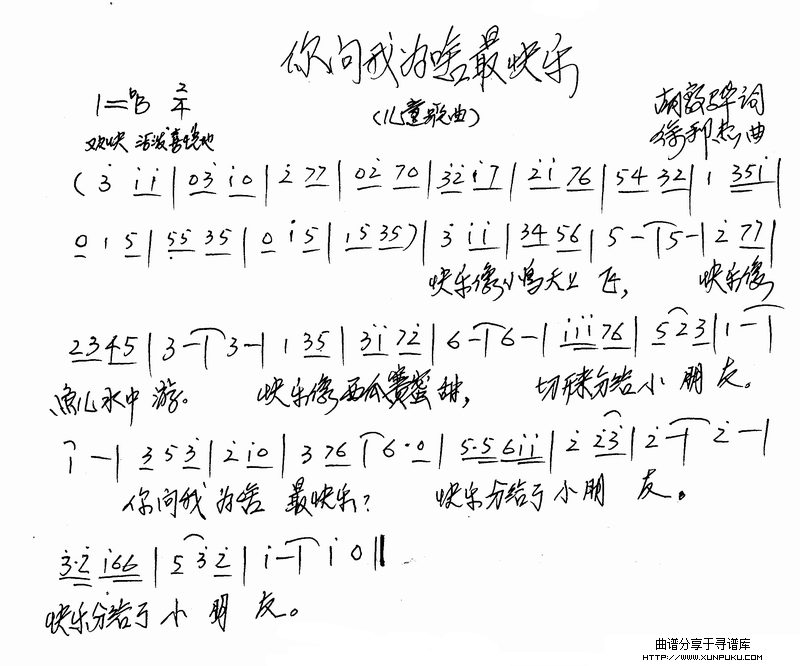 你问我为啥最快乐
1=♭B 2/4
(儿童歌曲)
词
欢快 活泼喜悦地
徐邦杰曲
( 3̇ i̇ i̇ | 0 3̇ i̇ 0 | 2̇ 7 7 | 0 2̇ 7 0 | 3̇ 2̇ i̇ 7 | 2̇ i̇ 7 6 | 5 4 3 2 | 1 3 5 i̇ |
0 1 5 | 5 5 3 5 | 0 i̇ 5 | 1 5 3 5 ) | 3̇ i̇ i̇ | 3 4 5 6 | 5 - | 5 - | 2̇ 7 7 |
快乐像小鸟天上飞, 快乐像
2 3 4 5 | 3 - | 3 - | 1 3 5 | 3 i̇ 7 2̇ | 6 - | 6 - | i̇ i̇ i̇ 7 6 | 5 2̇ 3 | 1 - |
鱼儿水中游。 快乐像西瓜赛蜜甜, 切开来分给小朋友。
1 - | 3 5 3̇ | 2̇ i̇ 0 | 3 7 6 | 6 · 0 | 5 · 5 6 i̇ i̇ | 2̇ 2̇ 3̇ | 2̇ - | 2̇ - |
你问我为啥最快乐? 快乐分给了小朋友。
3̇ · 2̇ i̇ 6 6 | 5 3̇ 2̇ | i̇ - | i̇ 0 ‖
快乐分给了小朋友。
曲谱分享于寻谱库
HTTP://WWW.XUNPUKU.COM